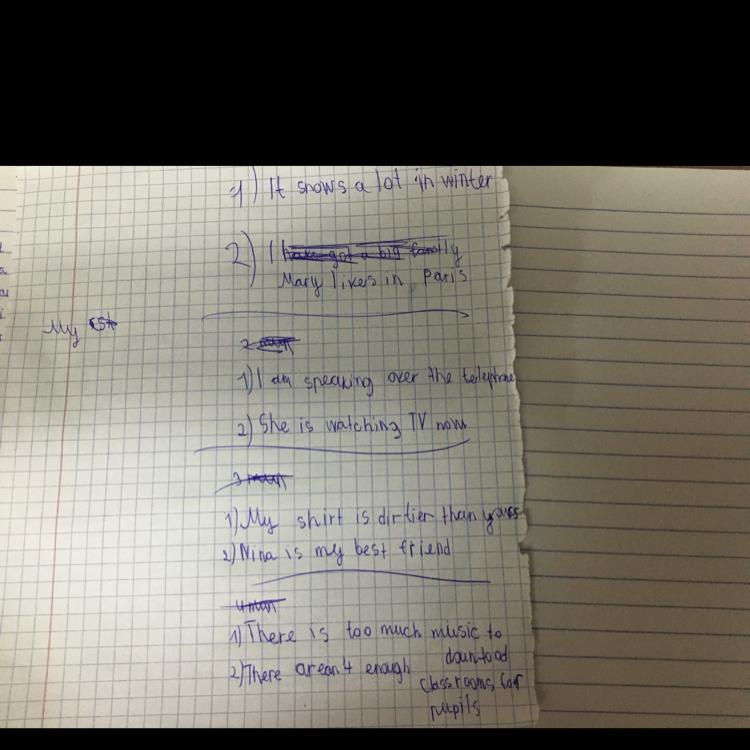 1) It snows a lot in winter
2) I have got a big family
Mary likes in Paris
My
2
1) I am speaking over the telephone
2) She is watching TV now
3
1) My shirt is dirtier than yours
2) Nina is my best friend
4
1) There is too much music to
download
2) There aren't enough
classrooms for
pupils